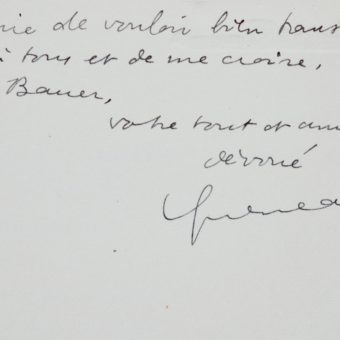 de vouloir bien
à tous et de me croire,
Bauer,
votre tout
dévoué